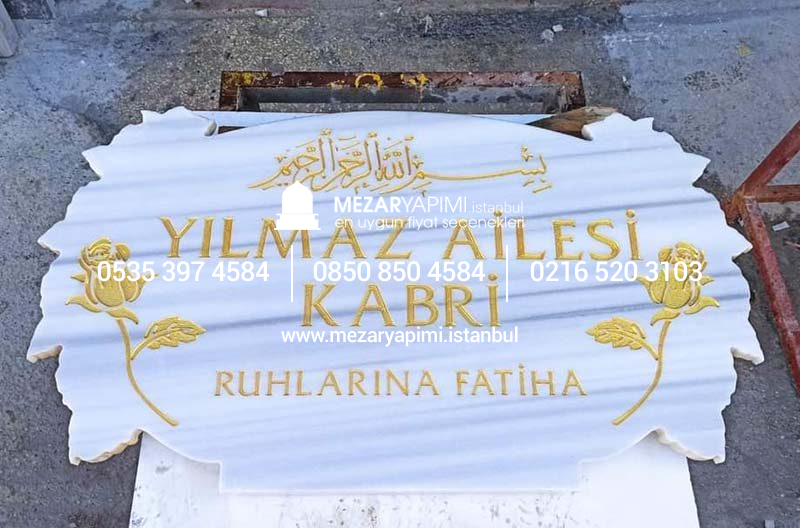 بِسْمِ اللّٰهِ الرَّحْمٰنِ الرَّحِيمِ
MEZARYAPIMI istanbul
en uygun fiyat seçenekleri
YILMAZ AİLESİ
0535 397 4584 | 0850 850 4584 | 0216 520 3103
KABRİ
www.mezaryapimi.istanbul
RUHLARINA FATİHA